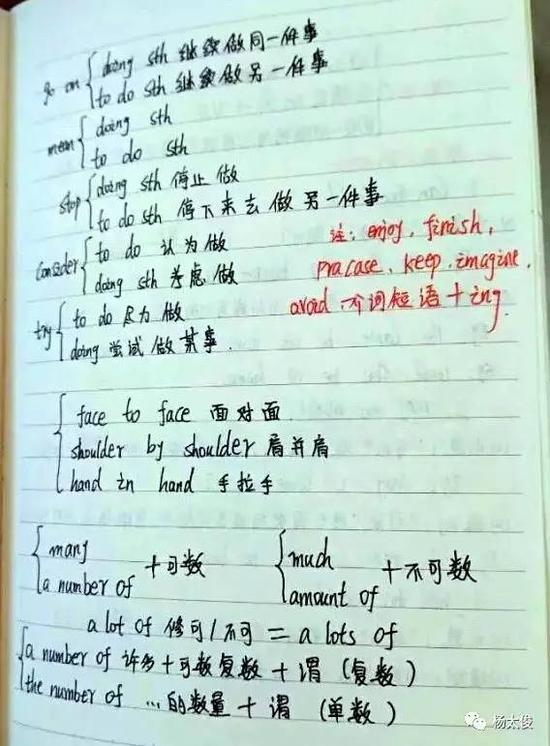 go on { doing sth 继续做同一件事
to do sth 继续做另一件事
mean { doing sth
to do sth
stop { doing sth 停止做
to do sth 停下来去做另一件事
consider { to do 认为做
doing sth 考虑做
try { to do 尽力做
doing 尝试做某事.
注: enjoy, finish,
pracase, keep, imagine,
avoid 介词短语 + ing
face to face 面对面
shoulder by shoulder 肩并肩
hand in hand 手拉手
{ many
a number of + 可数
{ much
amount of + 不可数
a lot of 修可/不可 = a lots of
{ a number of 许多 + 可数复数 + 谓 (复数)
the number of ... 的数量 + 谓 (单数)
杨太俊